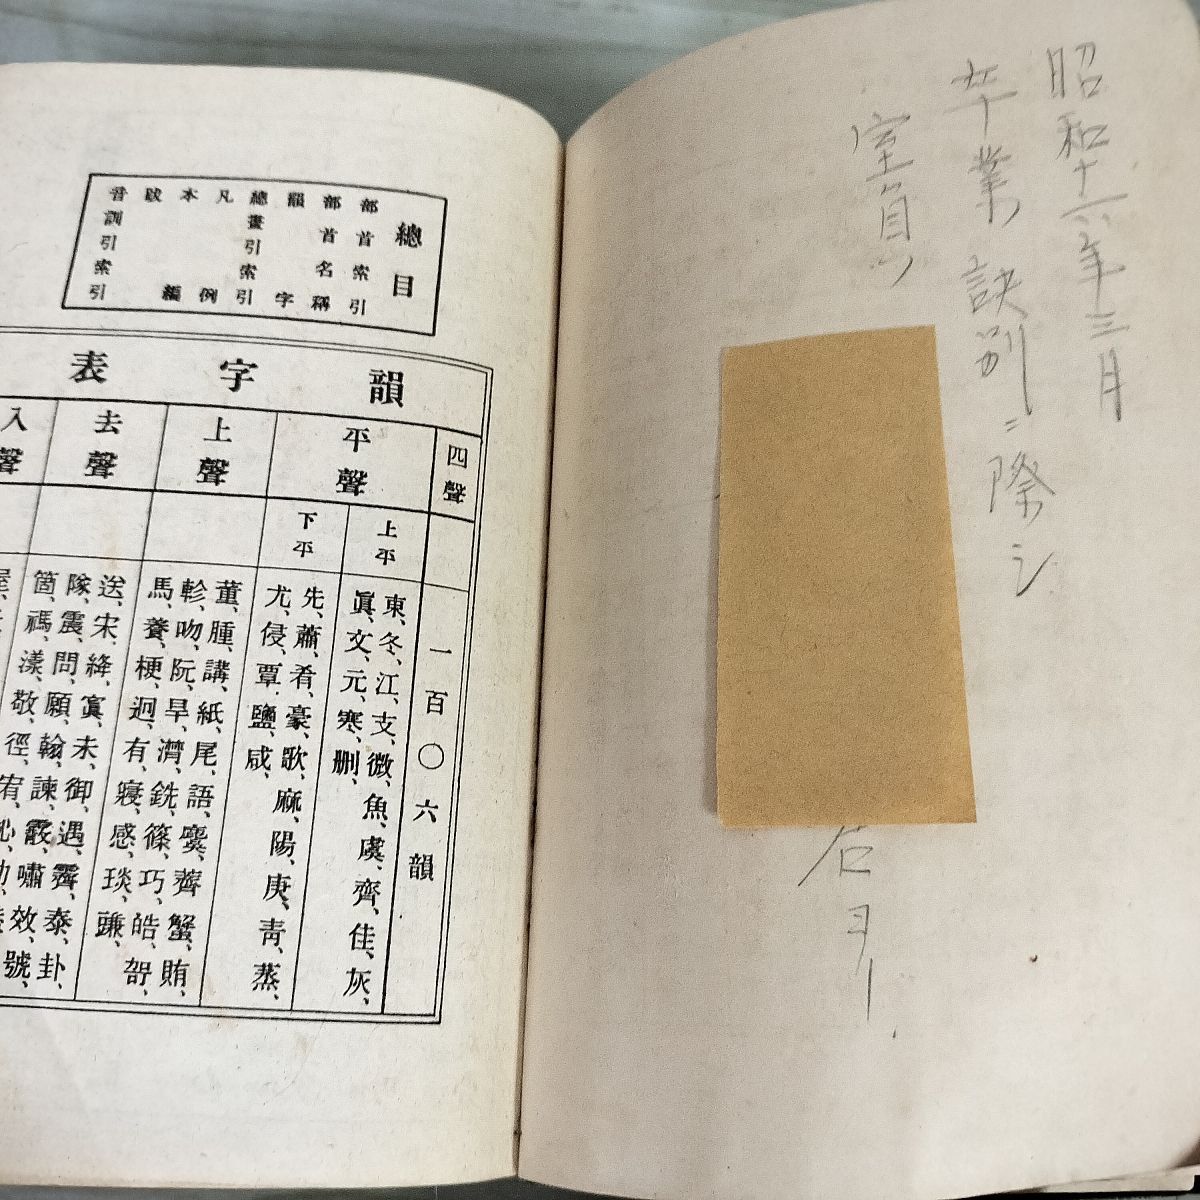 昭和十六年三月
卒業訣別ニ際シ
室員ノ
君ヨリ
總目
部首索引
部首名稱
韻字
總畫引索引
凡例
本編
跋
音訓引索引
韻字表
四聲
平聲
上聲
去聲
入聲
上平
下平
一百〇六韻
東、冬、江、支、微、魚、虞、齊、佳、灰、
眞、文、元、寒、删、
先、蕭、肴、豪、歌、麻、陽、庚、靑、蒸、
尤、侵、覃、鹽、咸、
董、腫、講、紙、尾、語、麌、薺、蟹、賄、
軫、吻、阮、旱、濟、銑、篠、巧、皓、哿、
馬、養、梗、迥、有、寢、感、琰、豏、
送、宋、絳、寘、未、御、遇、霽、泰、卦、
隊、震、問、願、翰、諫、霰、嘯、效、號、
箇、禡、漾、敬、徑、宥、沁、